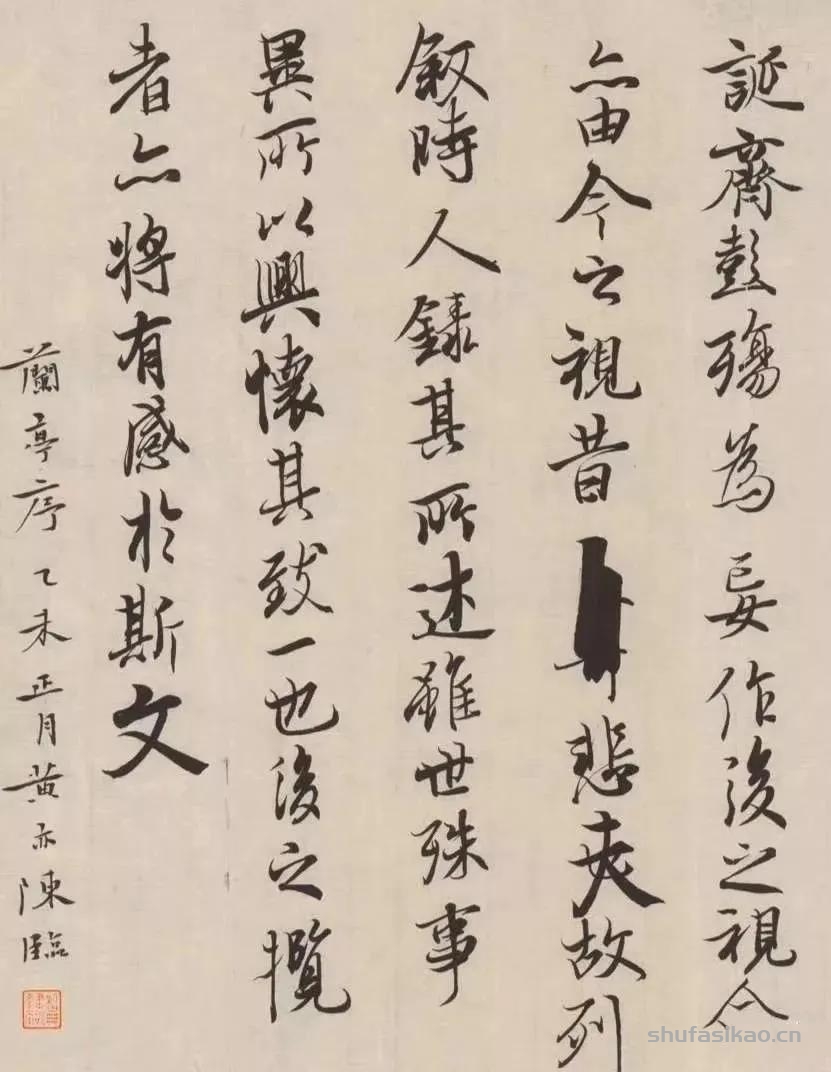 誕齊彭殤為妄作後之視今
亦由今之視昔悲夫故列
叙時人錄其所述雖世殊事
異所以興懷其致一也後之攬
者亦將有感於斯文
蘭亭序乙未正月黄亦陳臨
shufasikao.cn